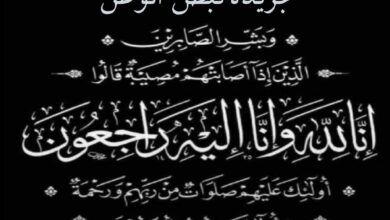 جريدة نبض الوطن
وَبَشِّرِ الصَّابِرِينَ
الَّذِينَ إِذَا أَصَابَتْهُمْ مُصِيبَةٌ قَالُوا
إِنَّا لِلَّهِ وَإِنَّا إِلَيْهِ رَاجِعُونَ
أُولَٰئِكَ عَلَيْهِمْ صَلَوَاتٌ مِنْ رَبِّهِمْ وَرَحْمَةٌ